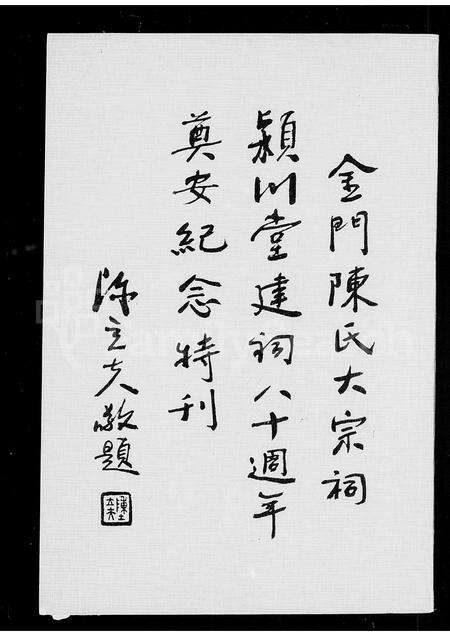 金門陳氏大宗祠
潁川堂建祠八十週年
奠安紀念特刊
陳立夫敬題